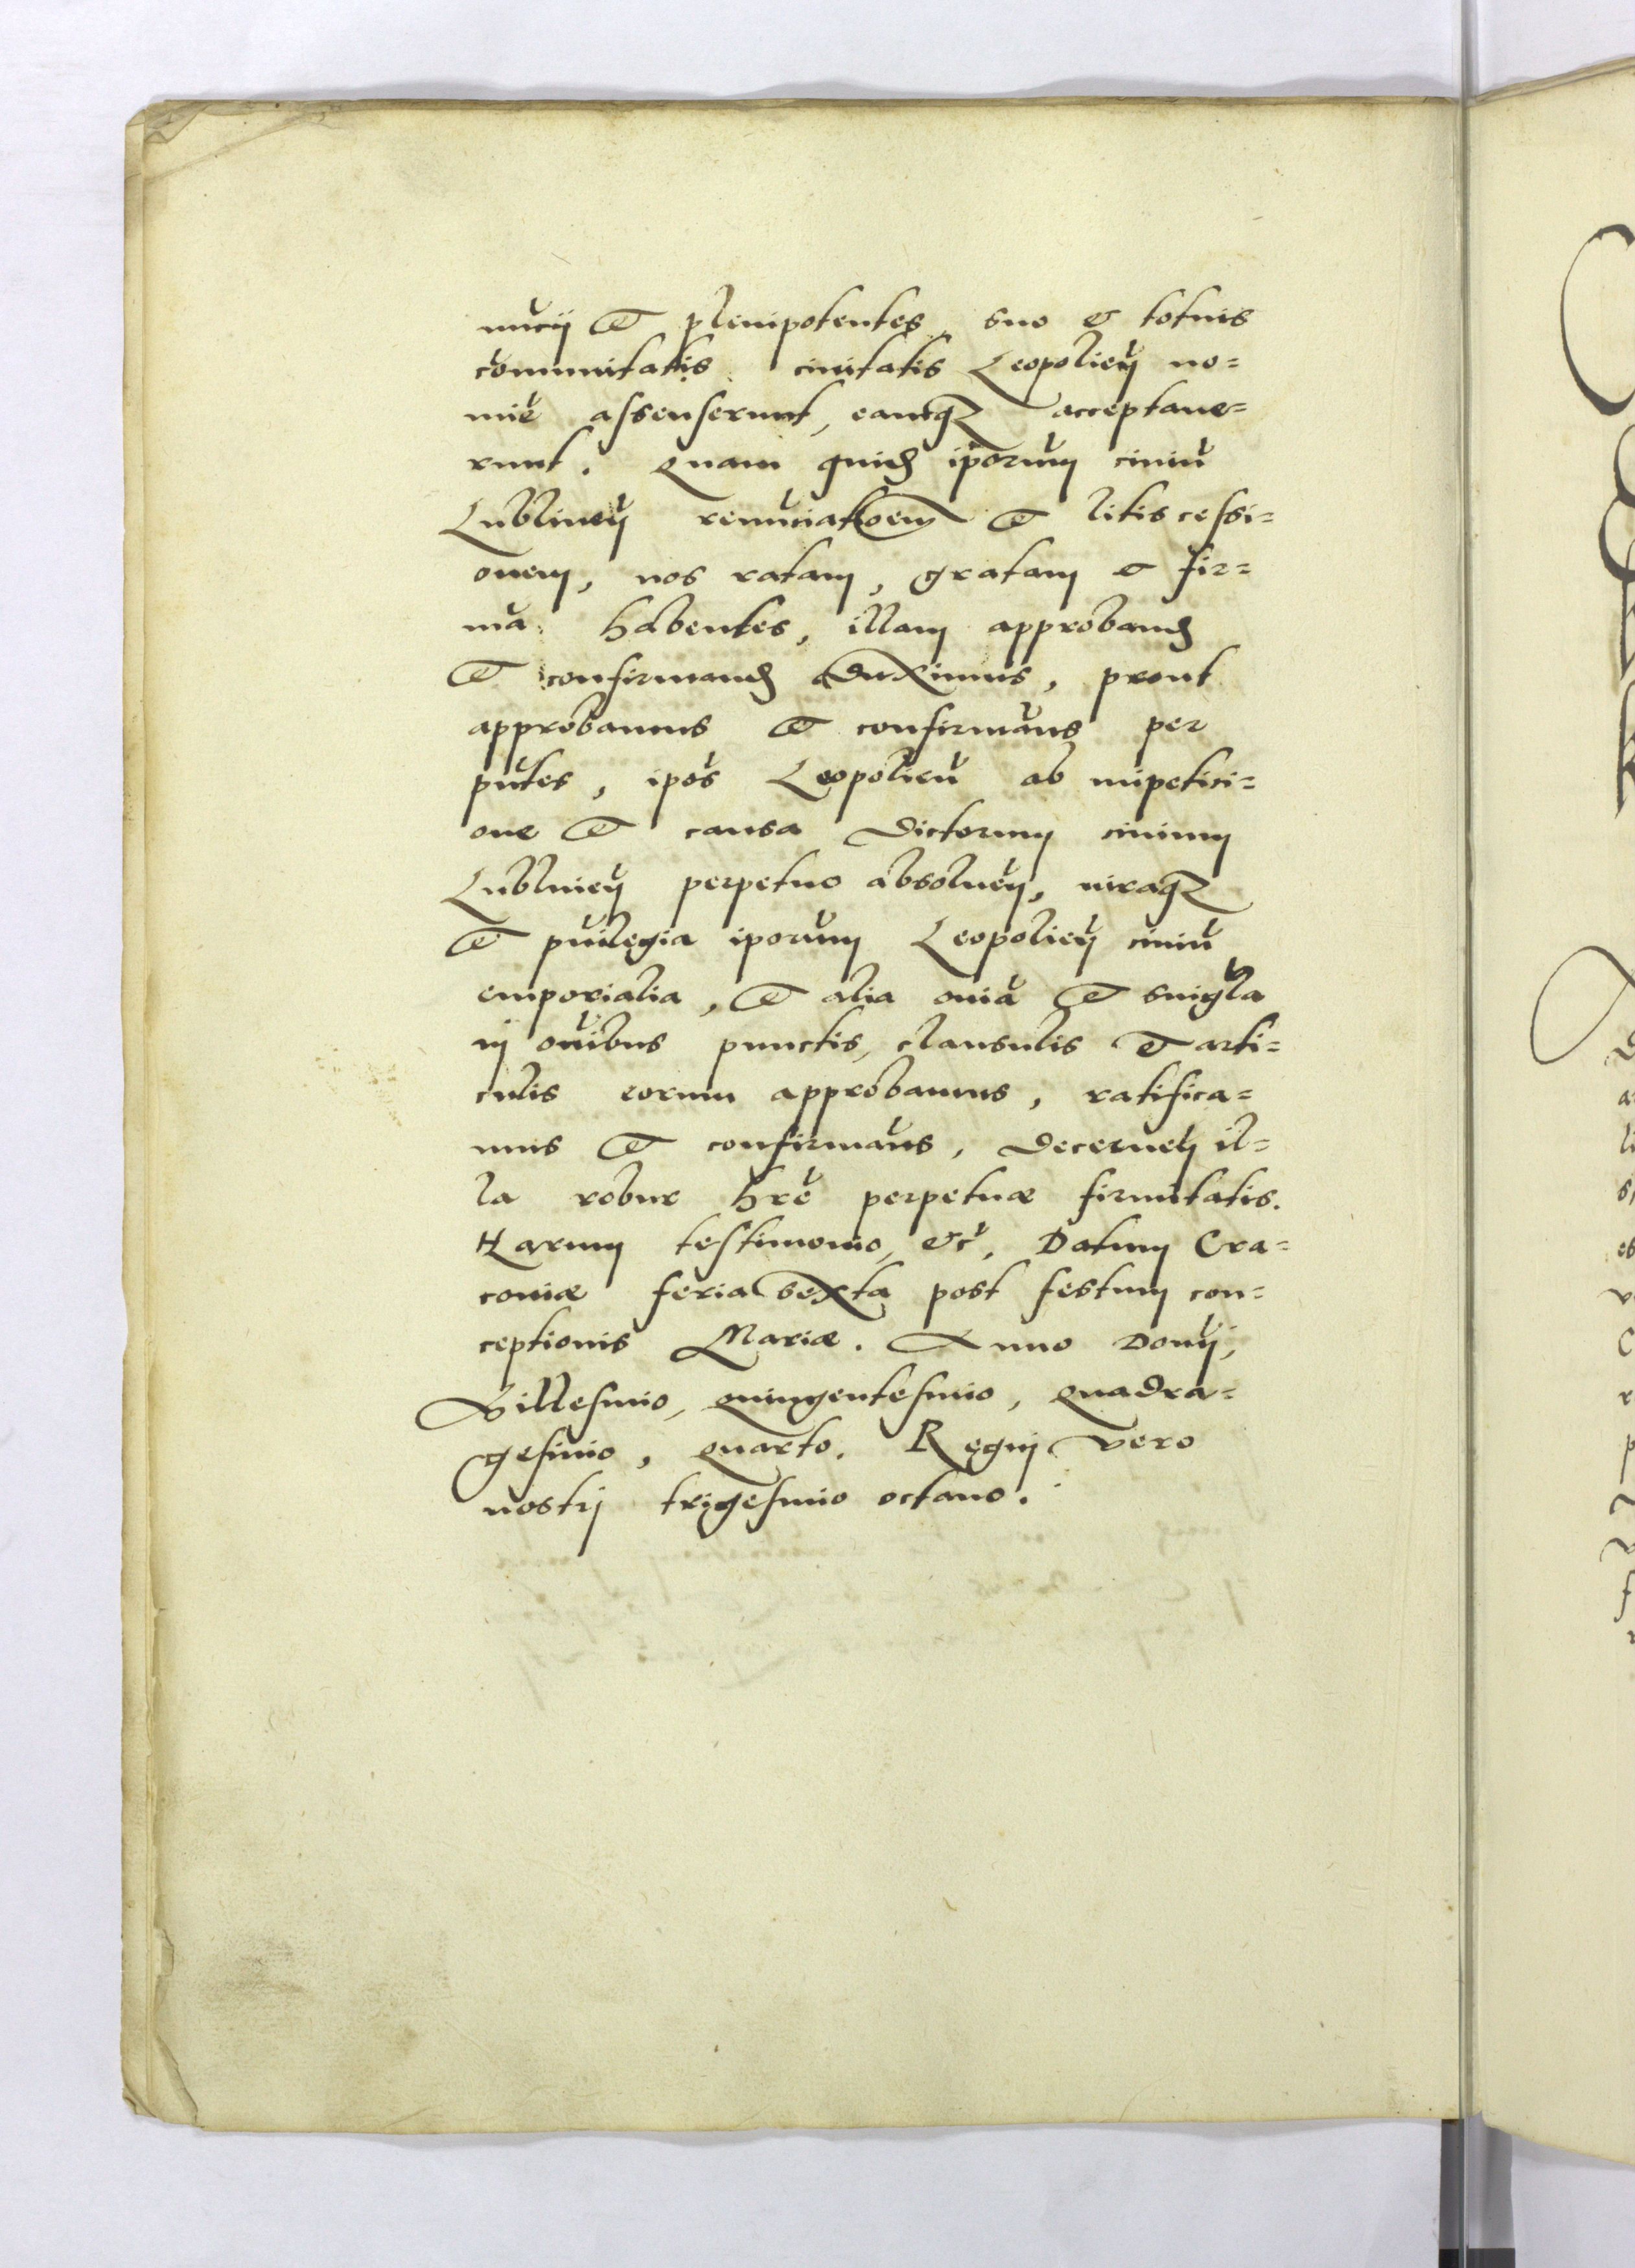 nuncÿ et plenipotentes, suo et totius
comunitatis ciuitatis Leopolien̄ no=
mīe assenserunt, eamq; acceptaue=
runt. Quam quid̃ ip̄orum ciuiū
Lublineñ renūciatōem et litis cessi=
onem, nos ratam, gratam et fir=
mā habentes, illam approband̃
et confirmand̃ duximus, prout
approbamus et confirmam̄s per
pn̄tes, ip̄os Leopolieñ ab impetici=
one et causa dictorum ciuium
Lublineñ perpetuo absolueñ, iuraq;
et pūilegia ip̄orum Leopolieñ ciuiū
emporialia, et alia om̄ia et singl̄a
in om̄ibus punctis, clausulis et arti=
culis eorum approbamus, ratifica=
mus et confirmam̄s, decerneñ il=
la robur hr̄e perpetuæ firmitatis.
Harum testimonio, etc̄. Datum Cra=
coviæ feria sexta post festum con=
ceptionis Mariæ. Anno Dom̄j,
Millesimo, quingentesimo, quadra=
gesimo, quarto. Regnj vero
nostrj trigesimo octauo.